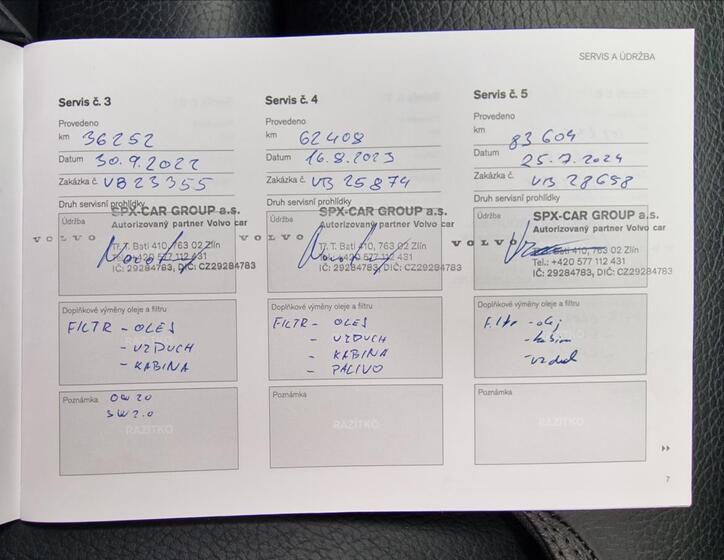 SERVIS A ÚDRŽBA
Servis č. 3
Provedeno
km 36252
Datum 30.9.2022
Zakázka č. VB23355
Druh servisní prohlídky
Údržba
SPX-CAR GROUP a.s.
Autorizovaný partner Volvo car
VOLVO
Tř. T. Bati 410, 763 02 Zlín
Tel.: +420 577 112 431
IČ: 29284783, DIČ: CZ29284783
Doplňkové výměny oleje a filtru
FILTR - OLEJ
- VZDUCH
- KABINA
Poznámka
0W20
SW2.0
RAZÍTKO
Servis č. 4
Provedeno
km 62408
Datum 16.8.2023
Zakázka č. VB 25874
Druh servisní prohlídky
Údržba
SPX-CAR GROUP a.s.
Autorizovaný partner Volvo car
VOLVO
Tř. T. Bati 410, 763 02 Zlín
Tel.: +420 577 112 431
IČ: 29284783, DIČ: CZ29284783
Doplňkové výměny oleje a filtru
FILTR - OLEJ
- VZDUCH
- KABINA
- PALIVO
Poznámka
RAZÍTKO
Servis č. 5
Provedeno
km 83604
Datum 25.7.2024
Zakázka č. VB 28658
Druh servisní prohlídky
Údržba
SPX-CAR GROUP a.s.
Autorizovaný partner Volvo car
VOLVO
Bati 410, 763 02 Zlín
Tel.: +420 577 112 431
IČ: 29284783, DIČ: CZ29284783
Doplňkové výměny oleje a filtru
Filtr - olej
- kabina
- vzduch
Poznámka
RAZÍTKO
7